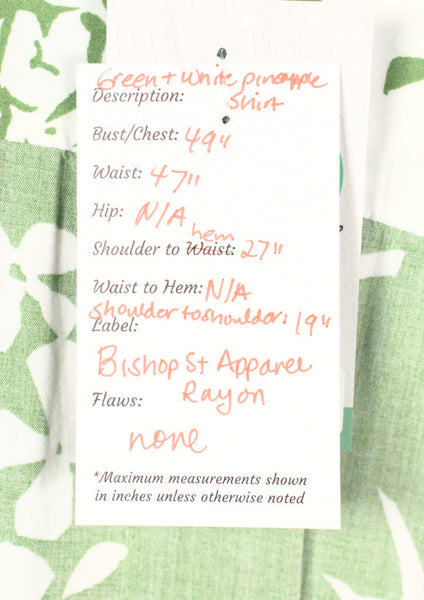 Green + white pineapple
Description: Shirt
Bust/Chest: 49"
Waist: 47"
Hip: N/A
hem
Shoulder to Waist: 27"
Waist to Hem: N/A
shoulder to shoulder: 19"
Label:
Bishop St Apparel
Rayon
Flaws:
none
*Maximum measurements shown
in inches unless otherwise noted